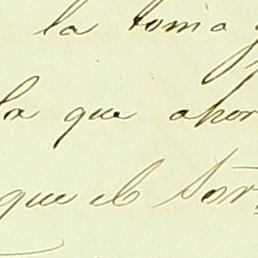 la toma y
la que ahor
que el Sor